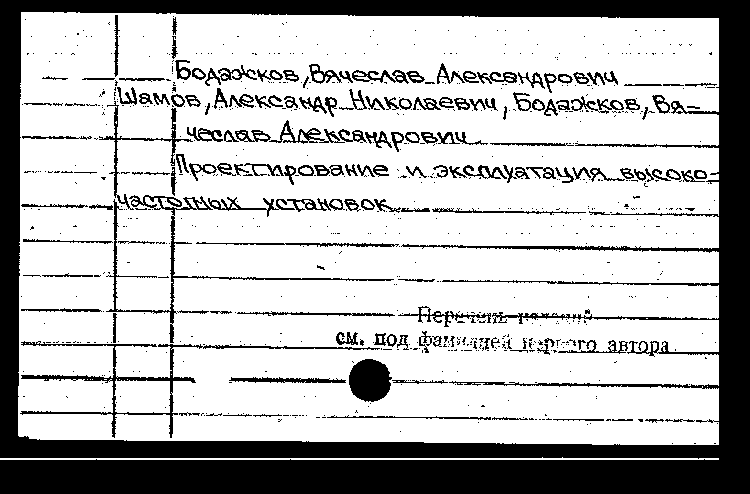 Бодажков, Вячеслав Александрович
Шамов, Александр Николаевич, Бодажков, Вя-
чеслав Александрович
Проектирование и эксплуатация высоко-
частотных установок
Перечень изданий
см. под фамилией первого автора